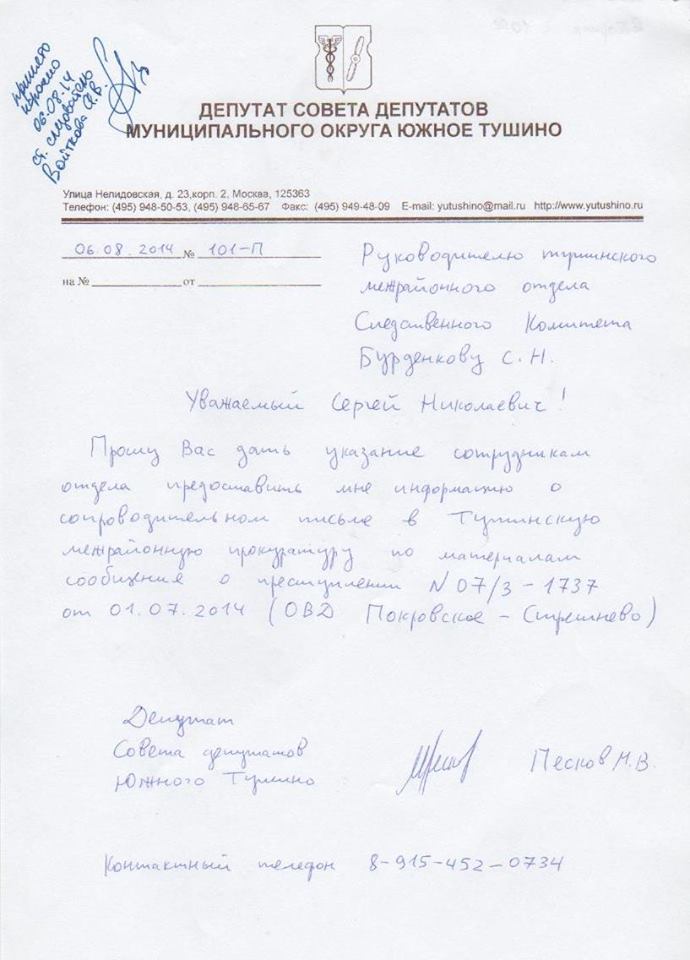 принято
нарочно
06.08.14
ст. следователь
Войткова А.В.
ДЕПУТАТ СОВЕТА ДЕПУТАТОВ
МУНИЦИПАЛЬНОГО ОКРУГА ЮЖНОЕ ТУШИНО
Улица Нелидовская, д. 23,корп. 2, Москва, 125363
Телефон: (495) 948-50-53, (495) 948-65-67 Факс: (495) 949-48-09 E-mail: yutushino@mail.ru http://www.yutushino.ru
06.08.2014 № 101-П
на № от
Руководителю тушинского
межрайонного отдела
Следственного Комитета
Бурденкову С.Н.
Уважаемый Сергей Николаевич!
Прошу Вас дать указание сотрудникам
отдела предоставить мне информацию о
сопроводительном письме в Тушинскую
межрайонную прокуратуру по материалам
сообщения о преступлении N 07/3-1737
от 01.07.2014 (ОВД Покровское-Стрешнево)
Депутат
Совета депутатов
Южного Тушино
Песков М.В.
Контактный телефон 8-915-452-0734